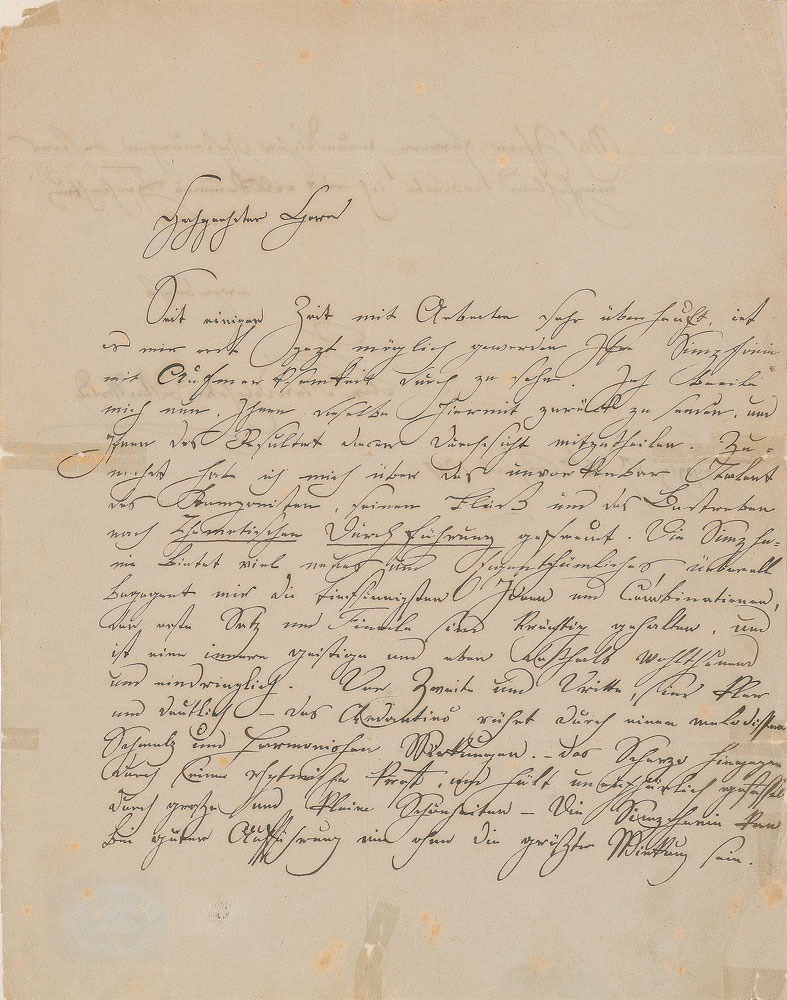 Hochgeehrter Herr
Seit einiger Zeit mit Arbeiten sehr überhäuft, ist
es mir erst jezt möglich geworden Ihre Simzfonie
mit Aufmerksamkeit durch zu sehn. Ich beeile
mich nun, Ihnen dieselbe hiermit zurück zu senden, und
Ihnen das Resultat meiner Durchsicht mitzutheilen. Zu-
nächst habe ich mich über das unverkenbar Talent
des Komponisten, seinen Fleiß und das Bestreben
nach Thematischen Durchführung gefreut. Die Simzfo-
nie bietet viel neues und Eigenthümliches überall
begegnet mir die tiefsinnigsten Ideen und Combinationen,
der erste Satz und Finale sind kräftig gehalten, und
ist eine innere geistige und eben deßhalb wohlthuend
und eindringlich. Der Zweite und Dritte, sind klar
und deutlich – das Andantino rührt durch einen melodischen
Schmelz und harmonischen Wirkungen. – das Scherzo hingegen
durch seine rhytmische Kraft, und hält unaufhörlich gefesselt
durch große und kleine Schönheiten – Die Simzfonie kan
bei guter Aufführung nie ohne die größte Wirkung sein.